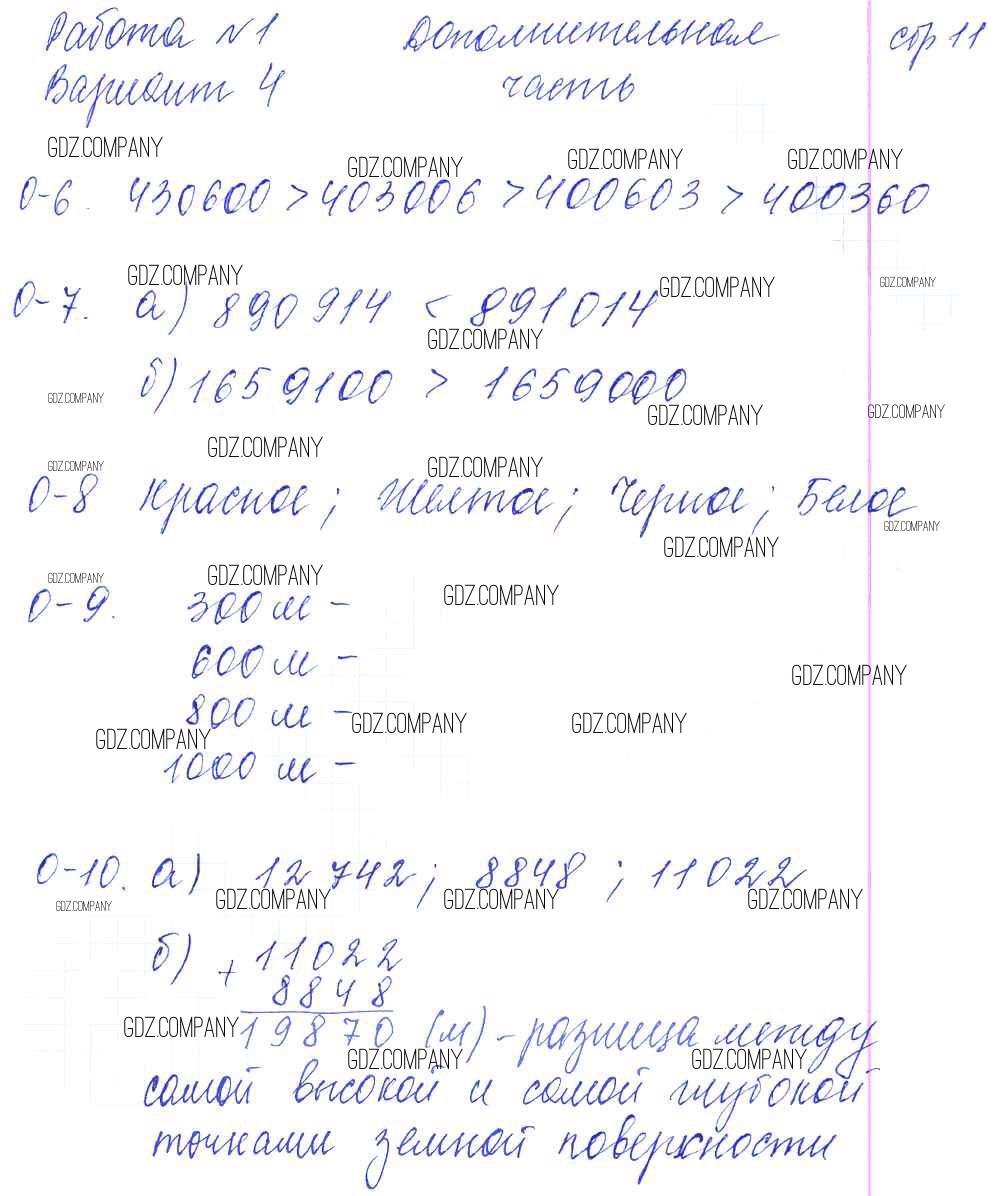 Работа №1 Дополнительная стр 11
Вариант 4 часть
GDZ.COMPANY
GDZ.COMPANY GDZ.COMPANY GDZ.COMPANY
О-6. 430600 > 403006 > 400603 > 400360
GDZ.COMPANY GDZ.COMPANY GDZ.COMPANY
О-7. а) 890914 < 891014
GDZ.COMPANY
б) 1659100 > 1659000
GDZ.COMPANY GDZ.COMPANY GDZ.COMPANY
GDZ.COMPANY GDZ.COMPANY GDZ.COMPANY
О-8 Красное; Желтое; Черное; Белое
GDZ.COMPANY GDZ.COMPANY
GDZ.COMPANY GDZ.COMPANY GDZ.COMPANY
О-9. 300 м –
600 м –
GDZ.COMPANY
800 м –
GDZ.COMPANY GDZ.COMPANY GDZ.COMPANY
1000 м –
О-10. а) 12742; 8848; 11022
GDZ.COMPANY GDZ.COMPANY GDZ.COMPANY GDZ.COMPANY
б) + 11022
8848
GDZ.COMPANY 19870 (м) – разница между
GDZ.COMPANY GDZ.COMPANY
самой высокой и самой глубокой
точками земной поверхности